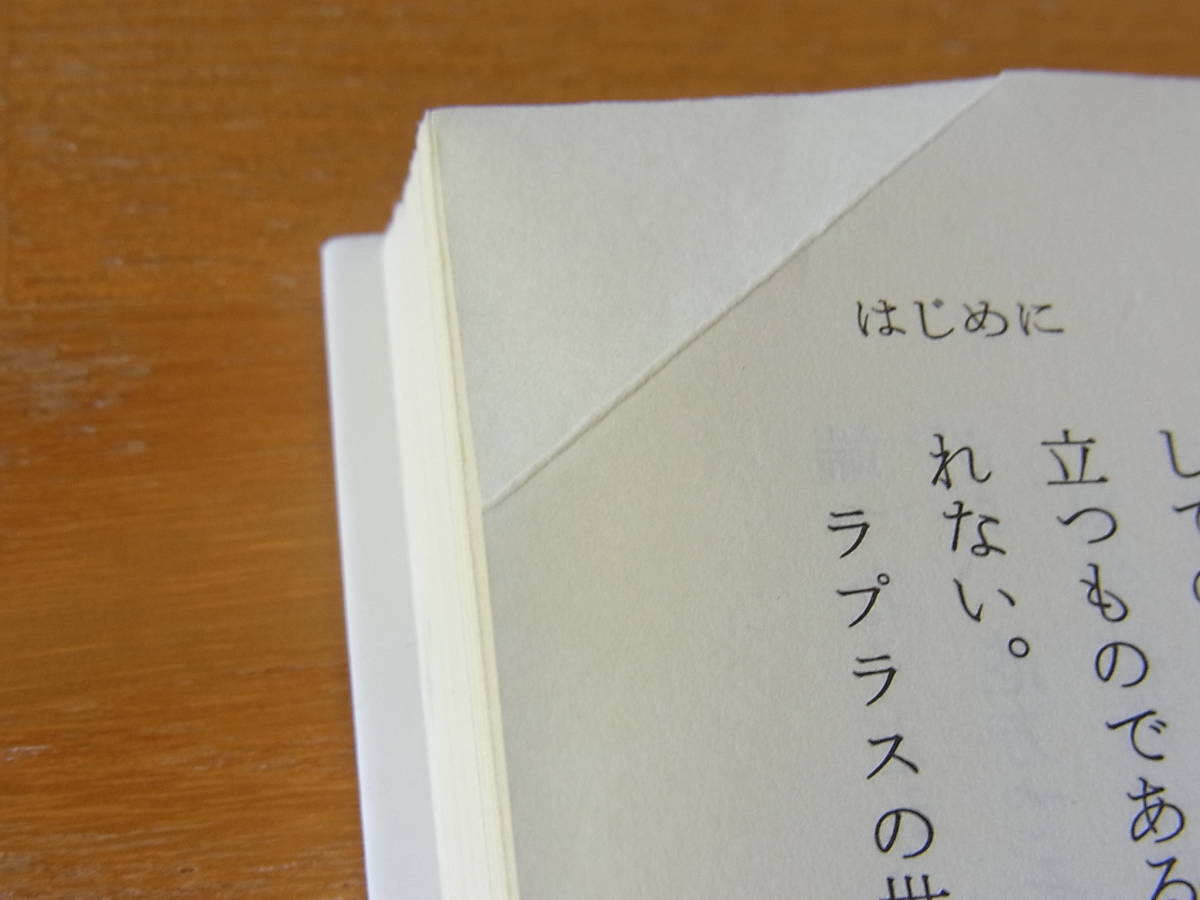 はじめに
立つものである
れない。
ラプラスの世